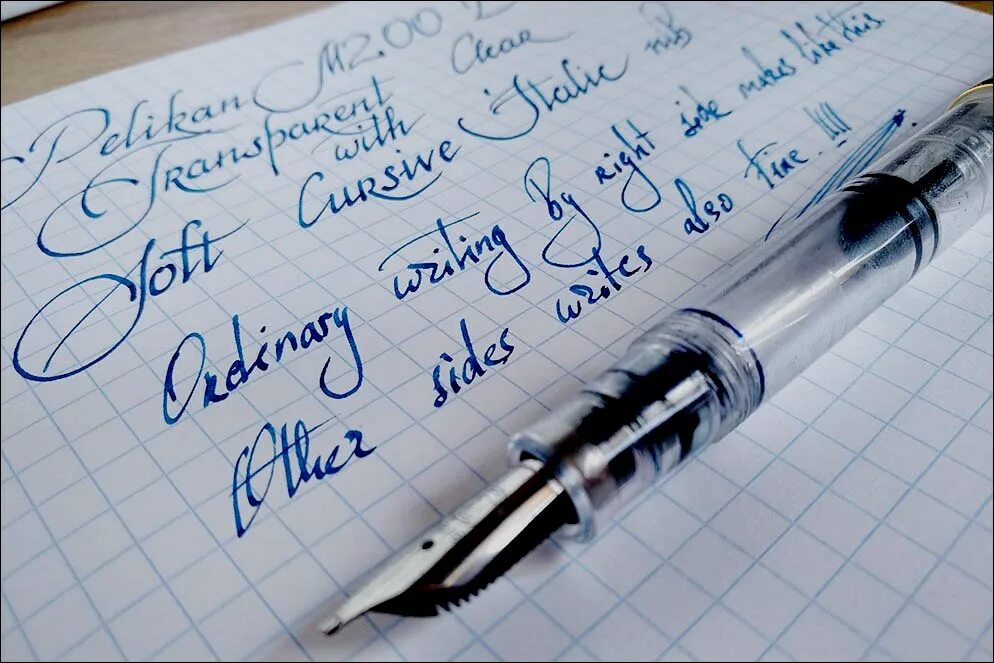 Pelikan M200
Transparent Clear
with
Soft Cursive Italic nib
Ordinary writing By right side makes like this
Other sides writes also fine. !!!!